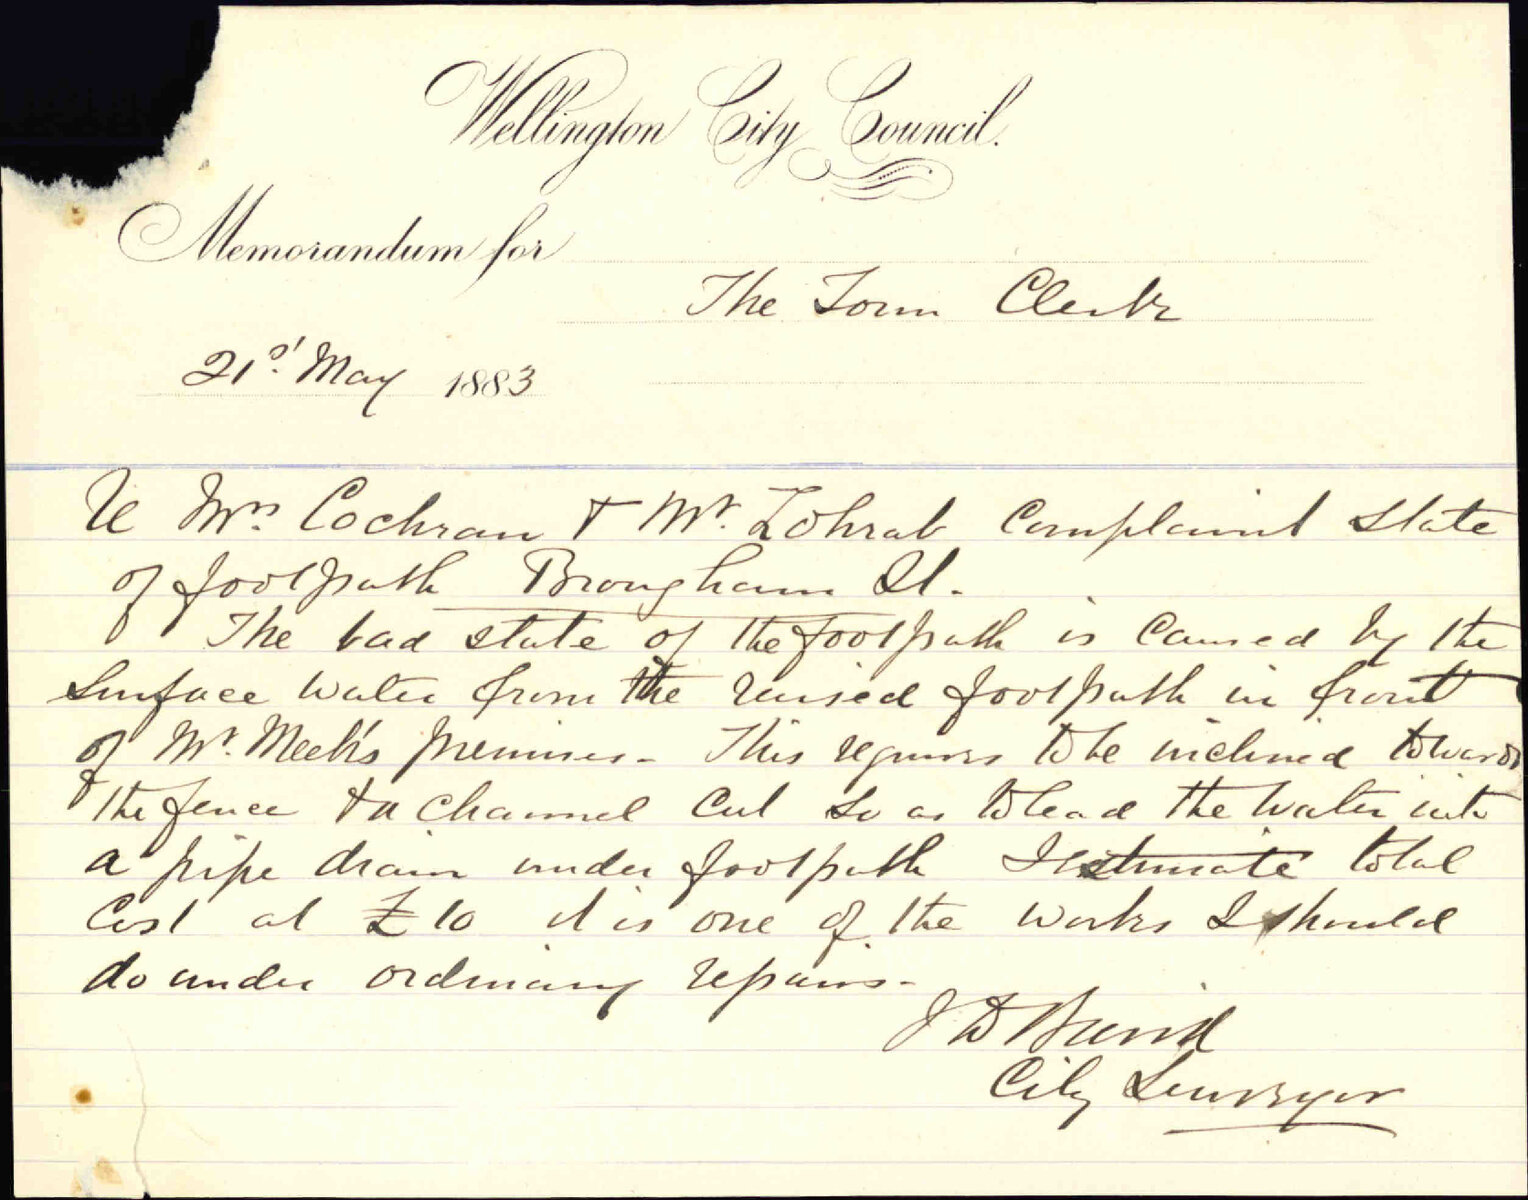 Wellington City Council.
Memorandum for
The Town Clerk
21st May 1883
Re Mrs Cochran & Mr. Zohrab Complaint state
of footpath Brougham St.
The bad state of the footpath is caused by the
surface water from the raised footpath in front
of Mr. Meek's premises. This requires to be inclined towards
the fence & a channel cut so as to lead the water into
a pipe drain under footpath I estimate total
cost at £10 it is one of the works I should
do under ordinary repairs.
J D Baird
City Surveyor